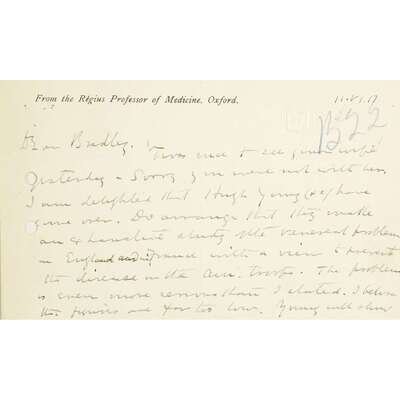 From the Regius Professor of Medicine, Oxford.
11.VI.17
Dear Bradley. 'twas nice to see your wife
yesterday - Sorry you were not with her
I am delighted that Hugh Young & have
come over. Do arrange that they make
an exhaustive study of the venereal problem
in England and in France with a view to prevent
the disease in the Am. troops. The problem
is even more serious than I stated. I believe
the figures are far too low. Young will show